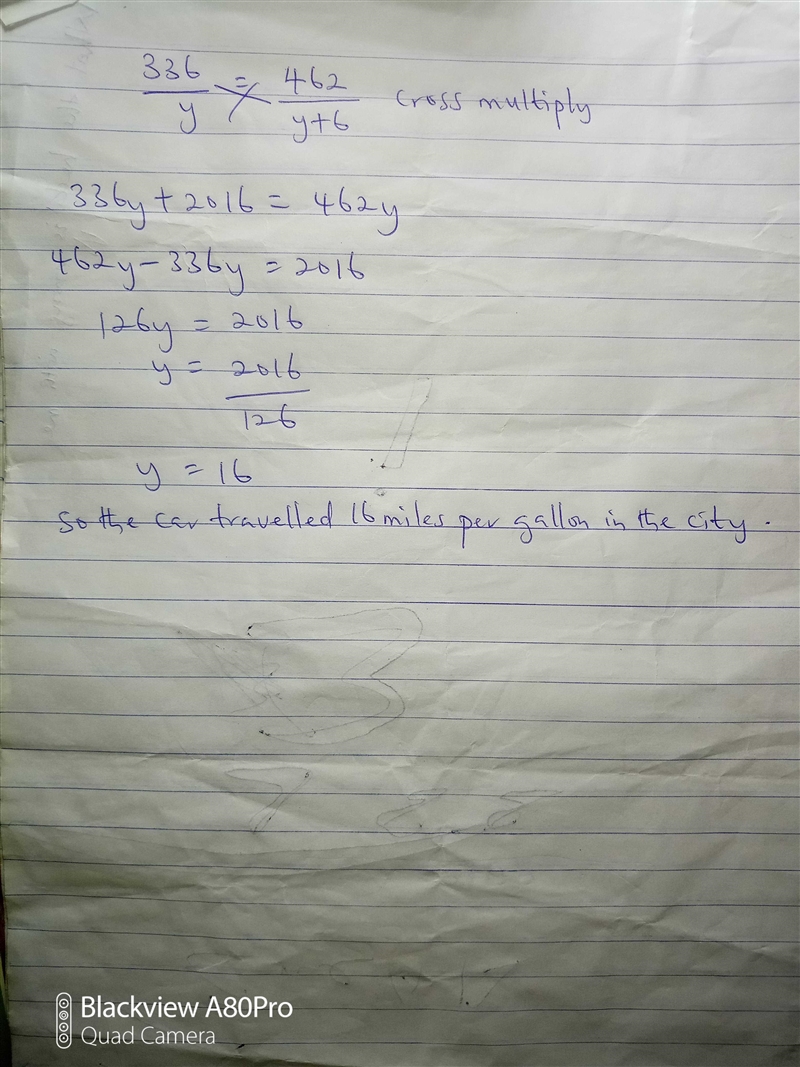 336/y = 462/y+6 cross multiply
336y + 2016 = 462y
462y - 336y = 2016
126y = 2016
y = 2016/126
y = 16
So the car travelled 16 miles per gallon in the city.
Blackview A80Pro
Quad Camera